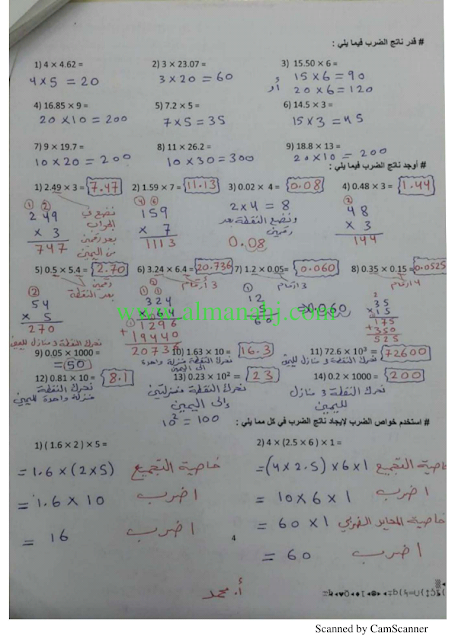 # قدر ناتج الضرب فيما يلي :
1) 4 × 4.62 = 2) 3 × 23.07 = 3) 15.50 × 6 =
4×5 = 20 3×20 = 60 15×6 = 90
أو 20×6 = 120
4) 16.85 × 9 = 5) 7.2 × 5 = 6) 14.5 × 3 =
20×10 = 200 7×5 = 35 15×3 = 45
7) 9 × 19.7 = 8) 11 × 26.2 = 9) 18.8 × 13 =
10×20 = 200 10×30 = 300 20×10 = 200
# أوجد ناتج الضرب فيما يلي :
1) 2.49 × 3 = 7.47 2) 1.59 × 7 = 11.13 3) 0.02 × 4 = 0.08 4) 0.48 × 3 = 1.44
249 نضع في 159 2×4 = 8 48
× 3 × 7 ونضع النقطة بعد رقمين × 3
747 1113 0.08 144
5) 0.5 × 5.4 = 2.70 6) 3.24 × 6.4 = 20.736 7) 1.2 × 0.05 = 0.060 8) 0.35 × 0.15 = 0.0525
54 324 12 35
× 5 × 64 5 ×15
270 1296 60 0.060 175
+ 19440 +350
20736 525
www.almanahj.com
9) 0.05 × 1000 = 50 10) 1.63 × 10 = 16.3 11) 72.6 × 10³ = 72600
نحرك النقطة 3 منازل لليمين
12) 0.81 × 10 = 8.1 13) 0.23 × 10² = 23 14) 0.2 × 1000 = 200
نحرك النقطة منزلة واحدة لليمين نحرك النقطة منزلتين إلى اليمين نحرك النقطة 3 منازل لليمين
10² = 100
# استخدم خواص الضرب لايجاد ناتج الضرب في كل مما يلي :
1) ( 1.6 × 2 ) × 5 = 2) 4 × (2.5 × 6 ) × 1 =
= 1.6 × (2×5) خاصية التجميع =(4×2.5)×6×1 خاصية التجميع
= 1.6 × 10 اضرب = 10×6×1 اضرب
= 16 اضرب = 60 ×1 خاصية المحايد الضربي
= 60 اضرب
4
أ. محمد
Scanned by CamScanner